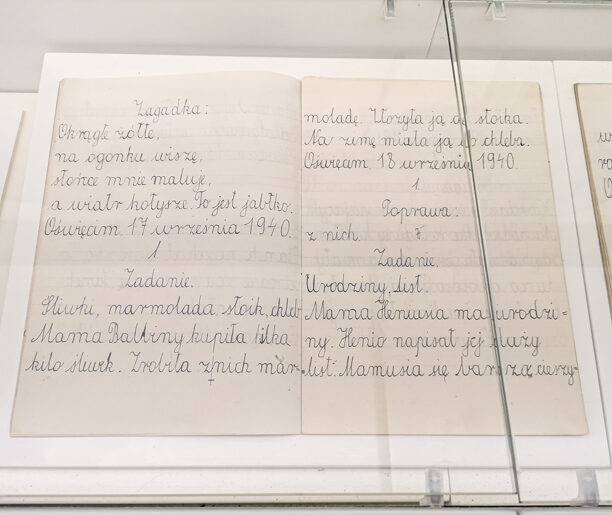 Zagadka:
Okrągłe żółte,
na ogonku wiszę,
słońce mnie maluje,
a wiatr kołysze. To jest jabłko.
Oświęcim 17 września 1940.
1
Zadanie.
Śliwki, marmolada słoik, chleb
Mama Balbiny kupiła kilka
kilo śliwek. Zrobiła z nich mar-
moladę. Włożyła ją do słoika.
Na zimę miała ją do chleba.
Oświęcim 18 września 1940
1
Poprawa:
z nich.
Zadanie.
Urodziny, list.
Mama Heniusia ma urodzi=
ny. Henio napisał jej duży
list. Mamusia się bardzo cieszy-